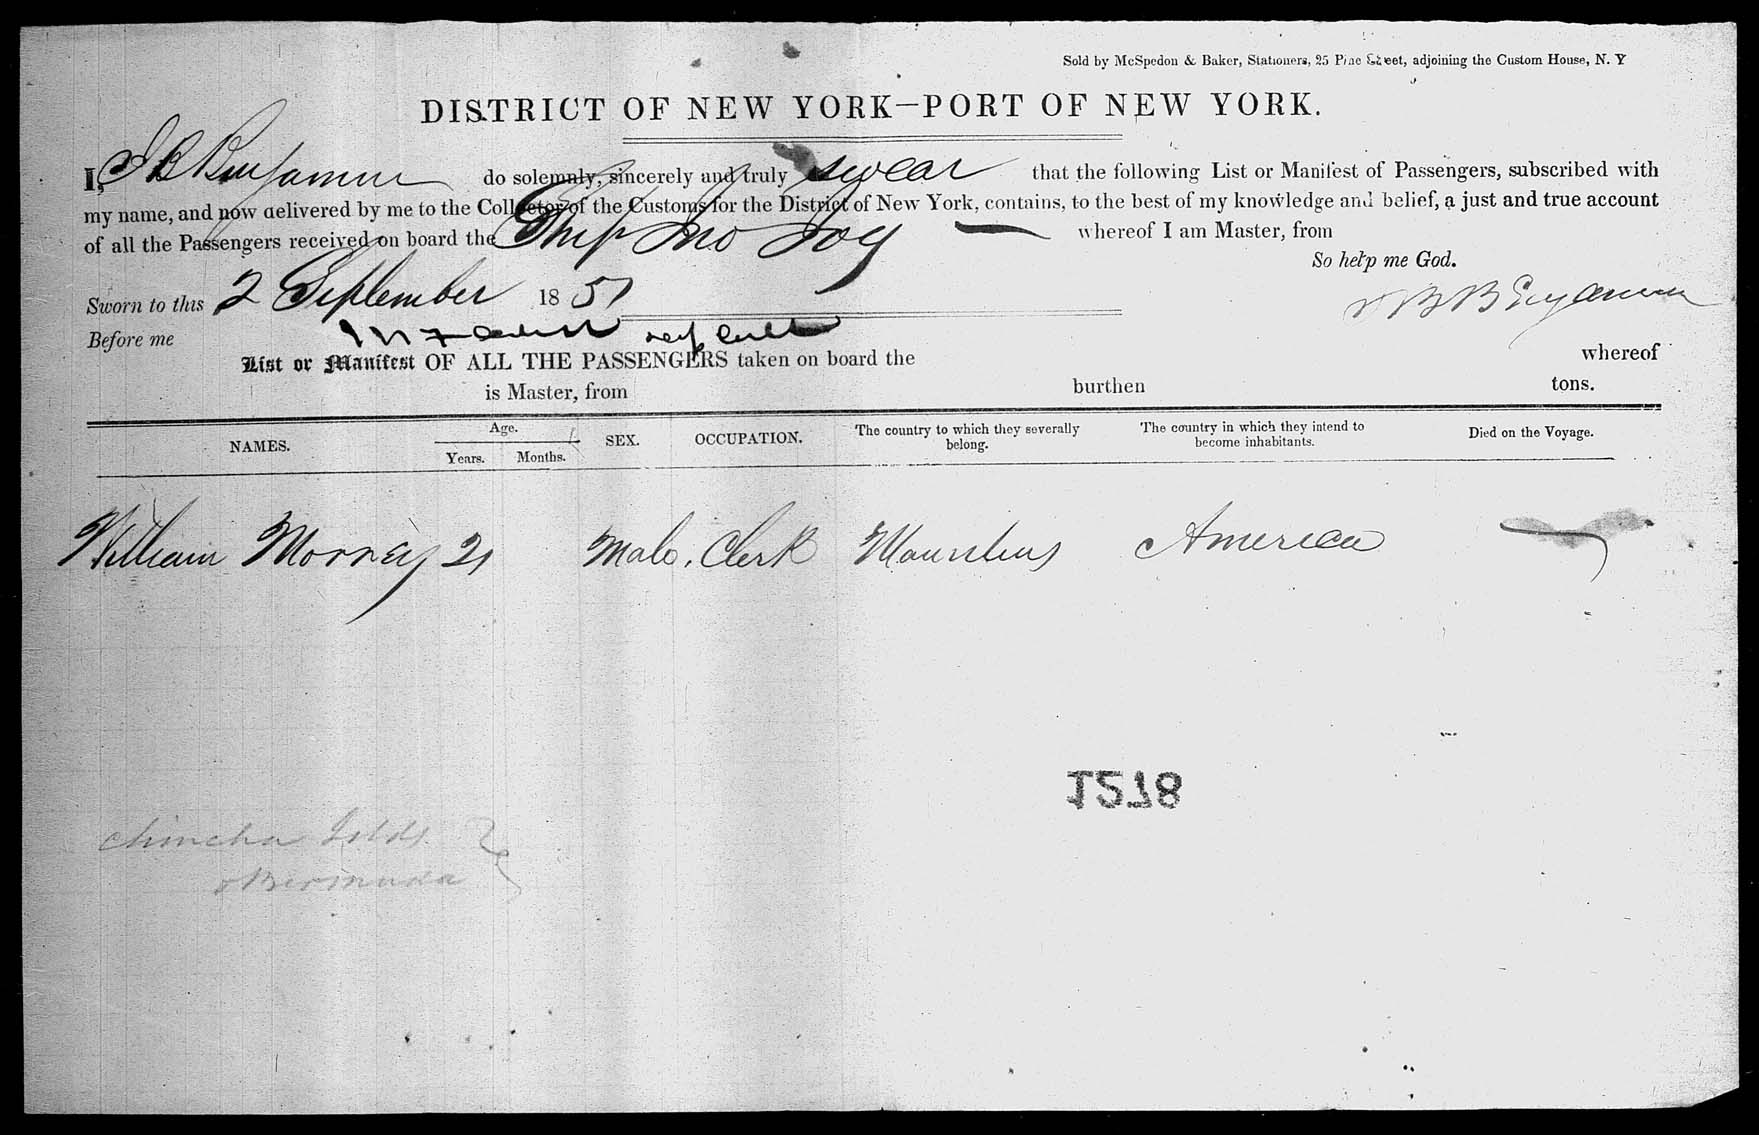 Sold by McSpedon & Baker, Stationers, 25 Pine Street, adjoining the Custom House, N. Y
DISTRICT OF NEW YORK—PORT OF NEW YORK.
I, J B Benjamin do solemnly, sincerely and truly swear that the following List or Manifest of Passengers, subscribed with
my name, and now delivered by me to the Collector of the Customs for the District of New York, contains, to the best of my knowledge and belief, a just and true account
of all the Passengers received on board the Ship Jno Joy — whereof I am Master, from
So help me God.
Sworn to this 2 September 1851
J B Benjamin
Before me
List or Manifest OF ALL THE PASSENGERS taken on board the whereof
is Master, from burthen tons.
NAMES. Age. Years. Months. SEX. OCCUPATION. The country to which they severally belong. The country in which they intend to become inhabitants. Died on the Voyage.
William Morray 21 Male. Clerk Mauritius America
1578
Chincha Islds.
& Bermuda